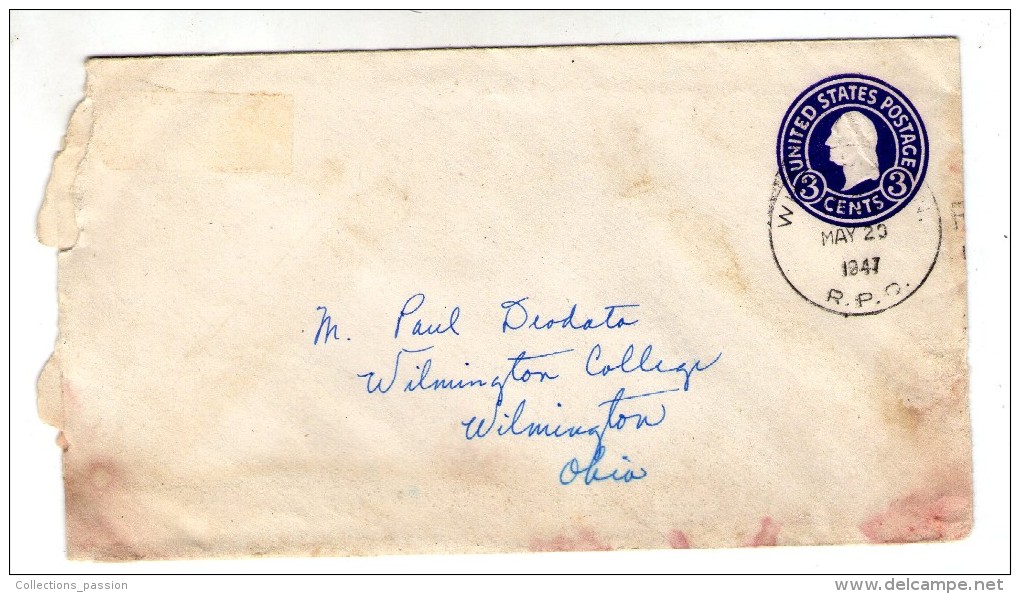 UNITED STATES POSTAGE
3 CENTS 3
MAY 23
1947
R.P.O.
M. Paul Deodato
Wilmington College
Wilmington
Ohio
Collections_passion
www.delcampe.net